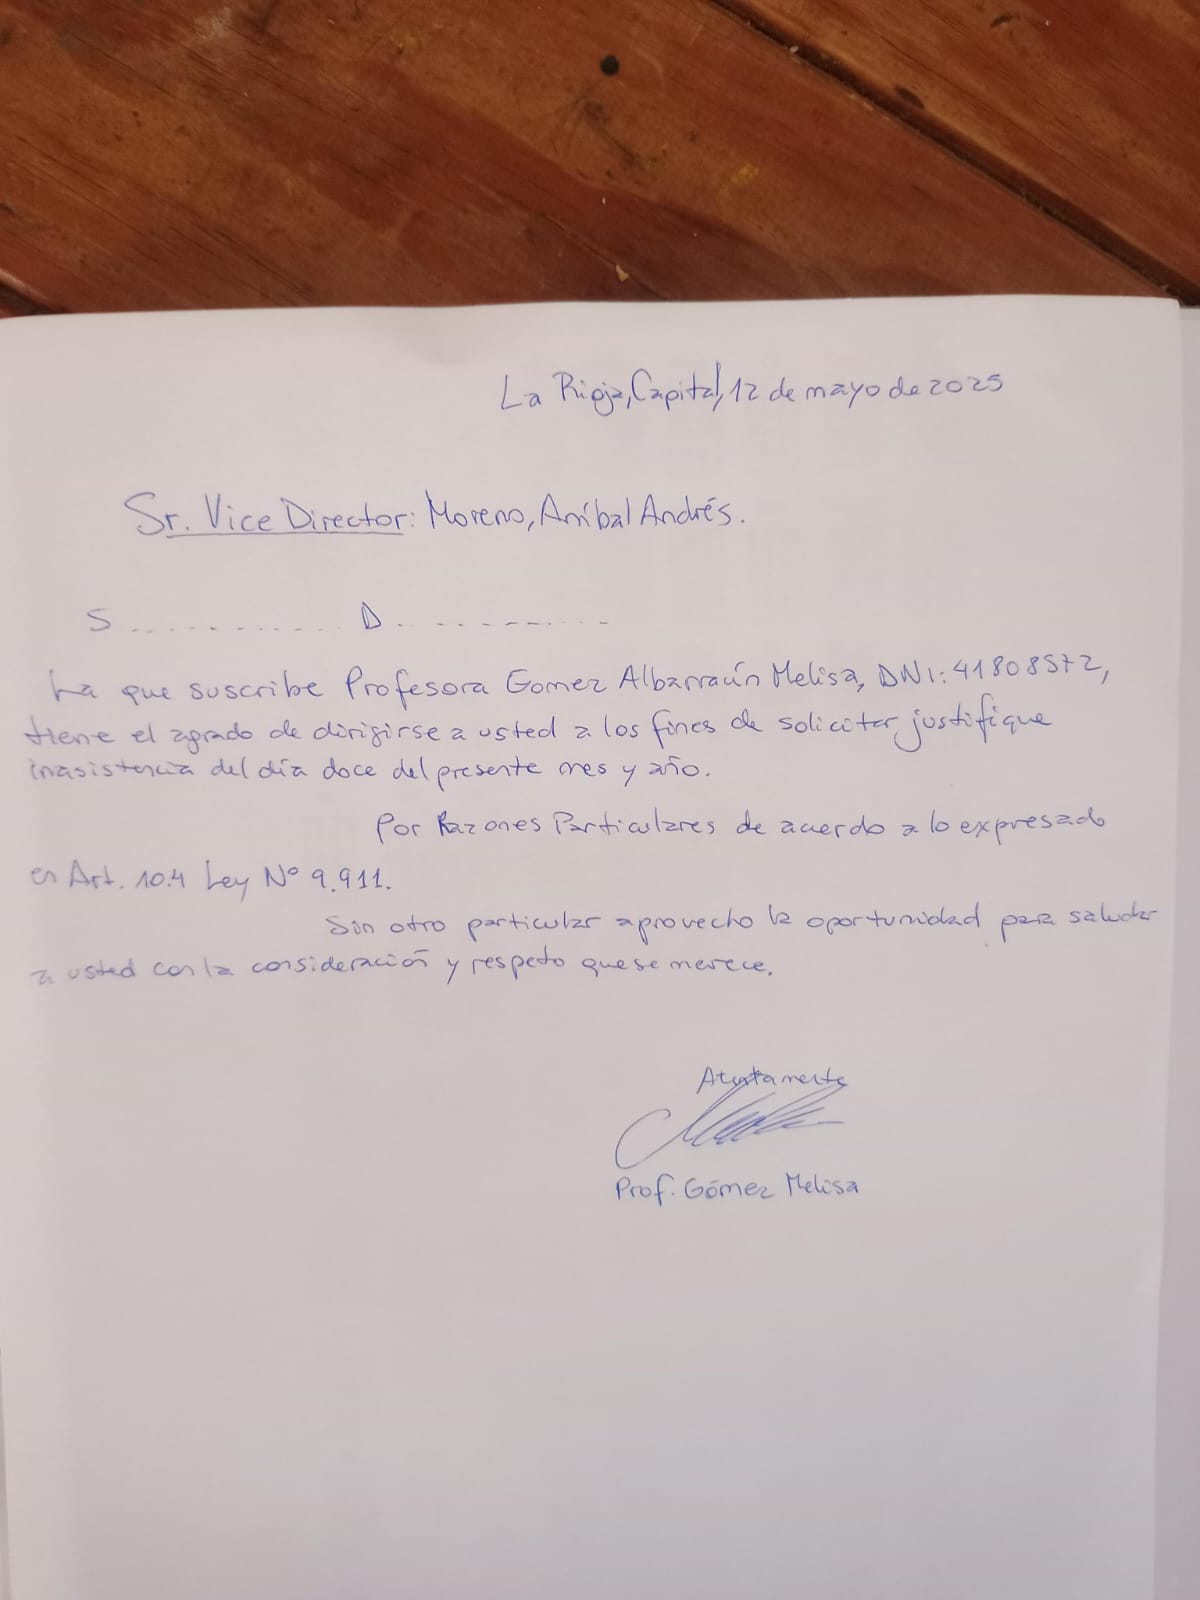 La Rioja, Capital, 12 de mayo de 2025
Sr. Vice Director: Moreno, Aníbal Andrés.
S ............ D ............
La que suscribe Profesora Gomez Albarracín Melisa, DNI: 41808572,
tiene el agrado de dirigirse a usted a los fines de solicitar justifique
inasistencia del día doce del presente mes y año.
Por Razones Particulares de acuerdo a lo expresado
en Art. 10.4 Ley Nº 9.911.
Sin otro particular aprovecho la oportunidad para saludar
a usted con la consideración y respeto que se merece.
Atentamente
Prof. Gómez Melisa